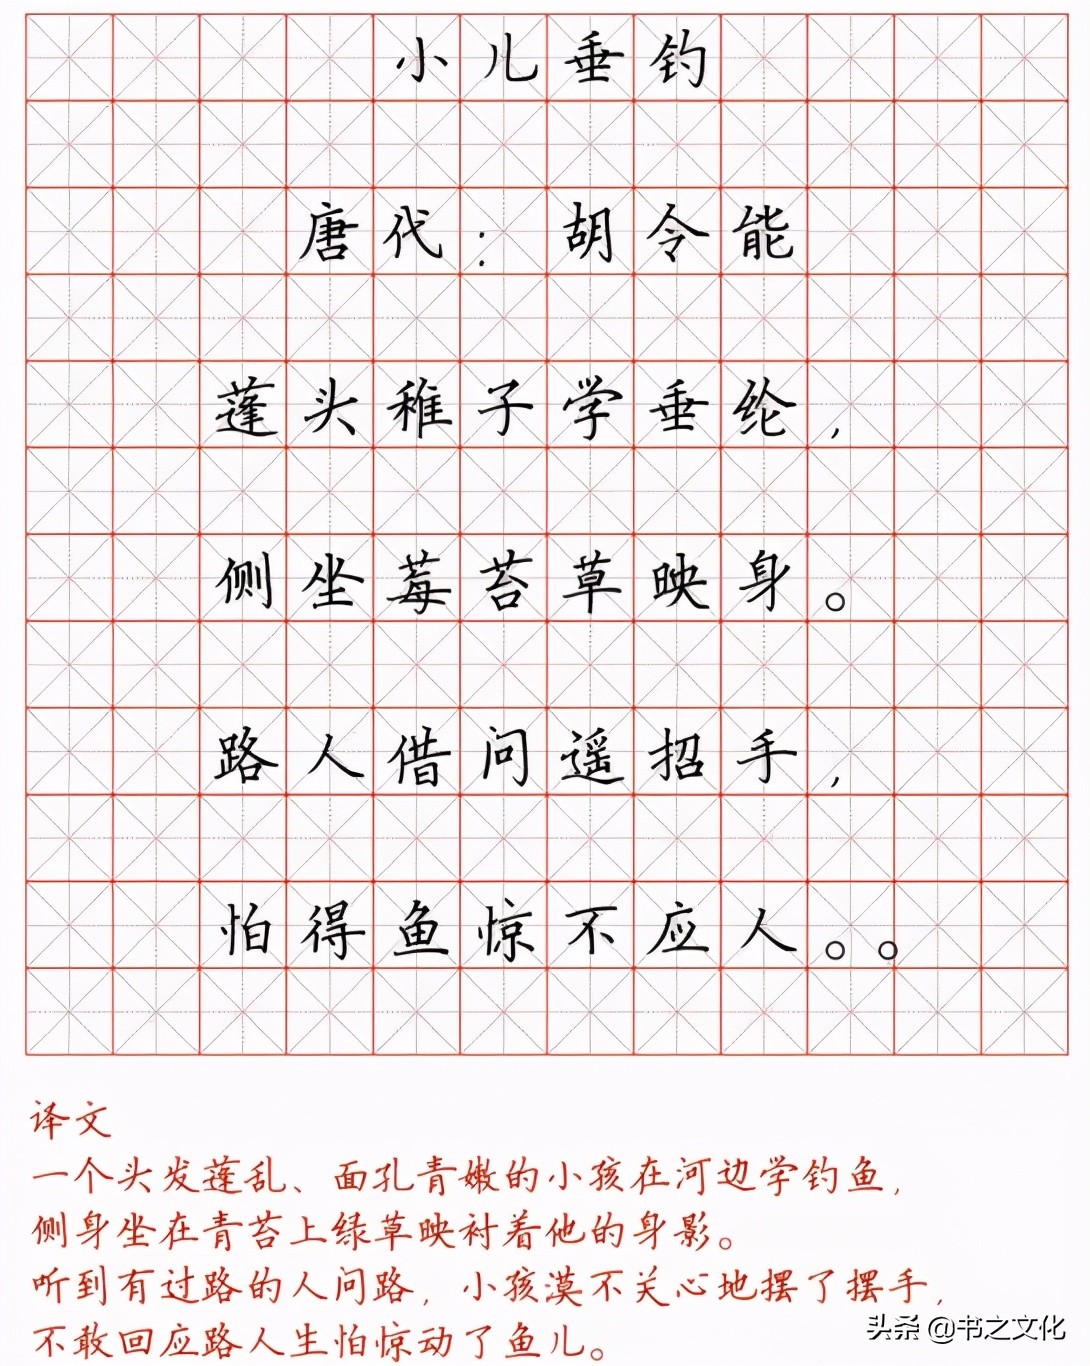 小儿垂钓
唐代：胡令能
蓬头稚子学垂纶，
侧坐莓苔草映身。
路人借问遥招手，
怕得鱼惊不应人。。
译文
一个头发蓬乱、面孔青嫩的小孩在河边学钓鱼，
侧身坐在青苔上绿草映衬着他的身影。
听到有过路的人问路，小孩漠不关心地摆了摆手，
不敢回应路人生怕惊动了鱼儿。
头条 @书之文化